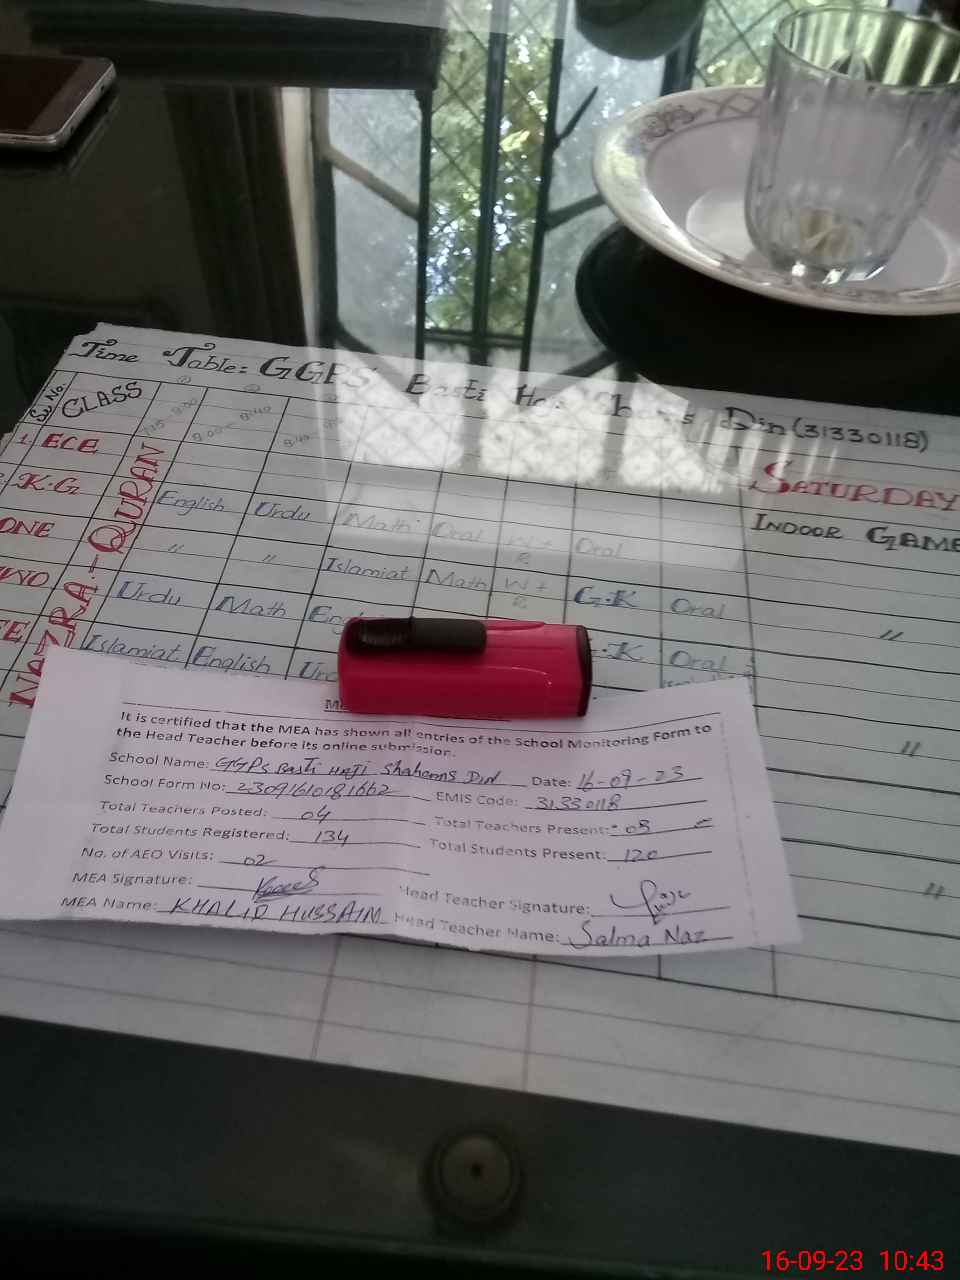 Time Table: GGPS Basti Din (31330118)
Sr No. CLASS
8:00 - 8:40
SATURDAY
1 ECE
NAZRA - QURAN
INDOOR GAME
K.G English Urdu Math Oral W + R Oral
ONE " " Islamiat Math W + R G.K Oral "
Urdu Math
Islamiat English
It is certified that the MEA has shown all entries of the School Monitoring Form to
the Head Teacher before its online submission.
School Name: GGPS Basti Haji Shahams Din Date: 16-09-23
School Form No: 23091610181662 EMIS Code: 31330118
Total Teachers Posted: 04 Total Teachers Present: 03
Total Students Registered: 134 Total Students Present: 120
No. of AEO Visits: 02
MEA Signature: Head Teacher Signature:
MEA Name: KHALID HUSSAIM Head Teacher Name: Salma Naz
16-09-23 10:43